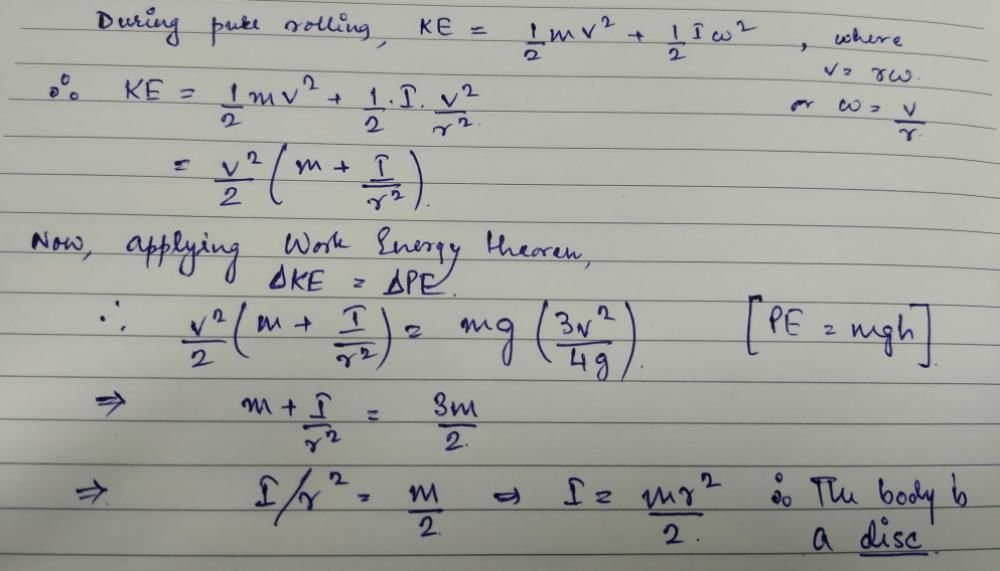 During pure rolling, KE = 1/2 mv² + 1/2 Iω² , where
v = rω.
∴ KE = 1/2 mv² + 1/2 · I · v²/r². or ω = v/r.
= v²/2 (m + I/r²).
Now, applying Work Energy theorem,
ΔKE = ΔPE.
∴ v²/2 (m + I/r²) = mg (3v²/4g). [PE = mgh]
⇒ m + I/r² = 3m/2.
⇒ I/r² = m/2. ⇒ I = mr²/2. ∴ The body is
a disc.